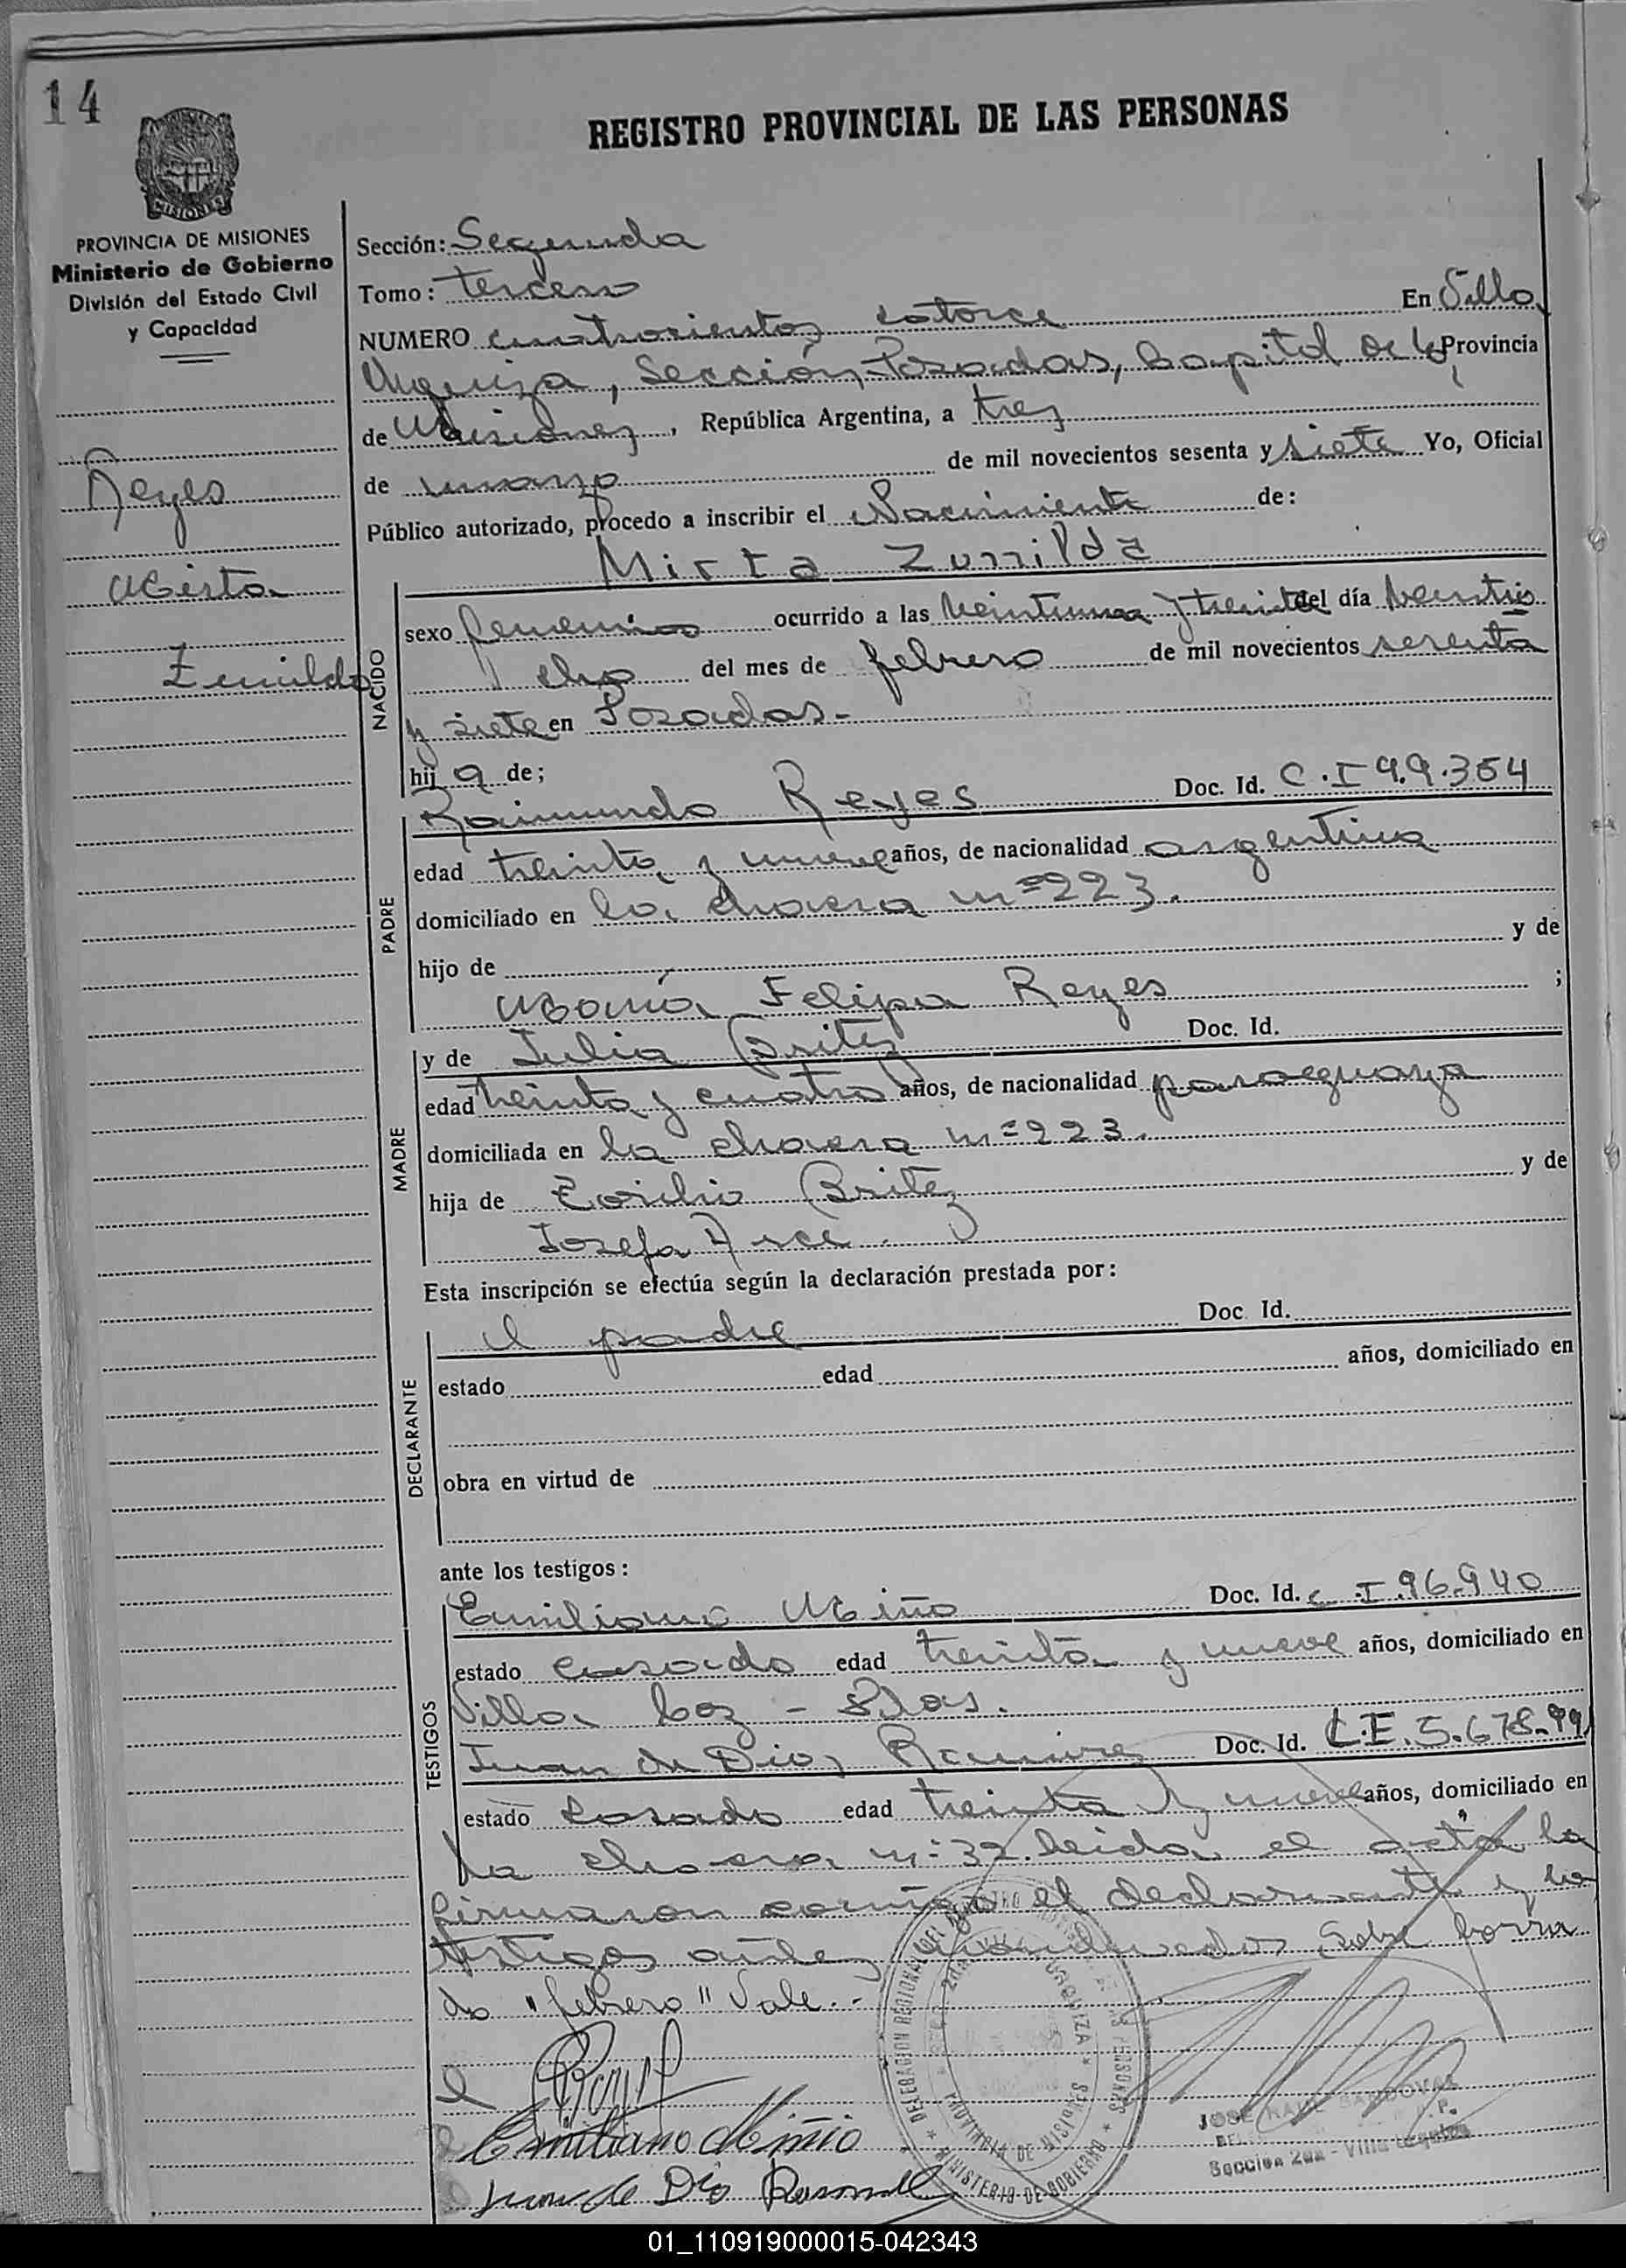 14
REGISTRO PROVINCIAL DE LAS PERSONAS
MISIONES
PROVINCIA DE MISIONES
Ministerio de Gobierno
División del Estado Civil
y Capacidad
Reyes
Mirta
Zunilda
Sección: Segunda
Tomo: tercero
NUMERO cuatrocientos catorce En Villa
Urquiza, Sección Posadas, Capital de la Provincia
de Misiones, República Argentina, a tres
de marzo de mil novecientos sesenta y siete Yo, Oficial
Público autorizado, procedo a inscribir el Nacimiento de:
Mirta Zunilda
NACIDO
sexo femenino ocurrido a las veintiuna y treinta del día veinti
ocho del mes de febrero de mil novecientos sesenta
y siete en Posadas.-
hija de;
Raimundo Reyes Doc. Id. C.I 99.354
PADRE
edad treinta y nueve años, de nacionalidad argentina
domiciliado en la chacra nº 223.
hijo de y de
María Felipa Reyes ;
y de Julia Britez Doc. Id.
MADRE
edad treinta y cuatro años, de nacionalidad paraguaya
domiciliada en la chacra nº 223.
hija de Britez y de
Josefa Arce.
Esta inscripción se efectúa según la declaración prestada por:
el padre Doc. Id.
DECLARANTE
estado edad años, domiciliado en
obra en virtud de
ante los testigos:
Emiliano Miño Doc. Id. C.I. 96.940
TESTIGOS
estado casado edad treinta y nueve años, domiciliado en
Villa Coz - Pdas.
Juan de Dios Ramirez Doc. Id. L.E. 5.678.99
estado casado edad treinta y nueve años, domiciliado en
la chacra nº 32. Leida el acta la
firmaron conmigo el declarante y los
testigos antes mencionados Sobre borra
do "febrero" Vale.-
Emiliano Miño
Juan de Dio
DELEGACION REGIONAL DEL
MINISTERIO DE GOBIERNO
PROVINCIA DE MISIONES
JOSE RAUL SANDOVAL
Sección 2da - Villa Urquiza
01_110919000015-042343